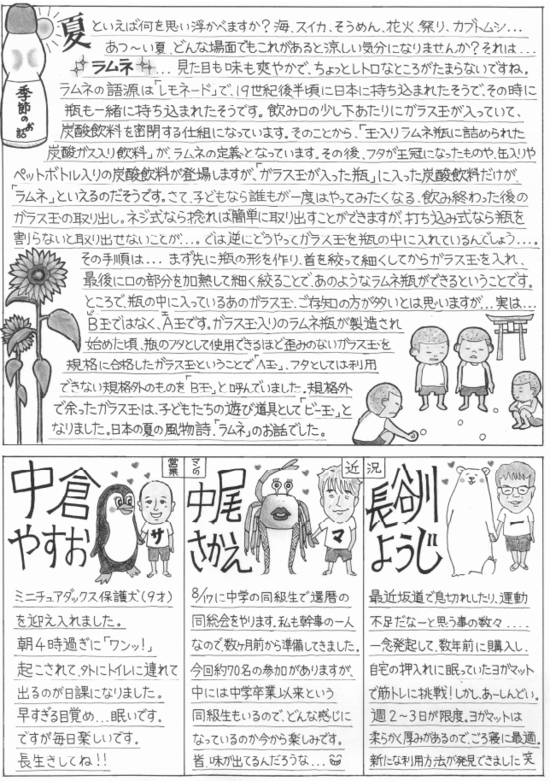 季節のお話
夏といえば何を思い浮かべますか？海、スイカ、そうめん、花火、祭り、カブトムシ...
あつ〜い夏、どんな場面でもこれがあると涼しい気分になりませんか？それは...
ラムネ...見た目も味も爽やかで、ちょっとレトロなところがたまらないですね。
ラムネの語源は「レモネード」で、19世紀後半頃に日本に持ち込まれたそうで、その時に
瓶も一緒に持ち込まれたそうです。飲み口の少し下あたりにガラス玉が入っていて、
炭酸飲料を密閉する仕組になっています。そのことから、「玉入りラムネ瓶に詰められた
炭酸ガス入り飲料」が、ラムネの定義となっています。その後、フタが王冠になったものや、缶入りや
ペットボトル入りの炭酸飲料が登場しますが、「ガラス玉が入った瓶」に入った炭酸飲料だけが、
「ラムネ」といえるのだそうです。さて、子どもなら誰もが一度はやってみたくなる、飲み終わった後の
ガラス玉の取り出し。ネジ式なら捻れば簡単に取り出すことができますが、打ち込み式なら瓶を
割らないと取り出せないことが...。では逆にどうやってガラス玉を瓶の中に入れているんでしょう...。
その手順は...まず先に瓶の形を作り、首を絞って細くしてからガラス玉を入れ、
最後に口の部分を加熱して細く絞ることで、あのようなラムネ瓶ができるということです。
ところで、瓶の中に入っているあのガラス玉、ご存知の方が多いとは思いますが...実は...
B玉ではなく、A玉です。ガラス玉入りのラムネ瓶が製造され
始めた頃、瓶のフタとして使用できるほど歪みのないガラス玉を
規格に合格したガラス玉ということで「A玉」、フタとしては利用
できない規格外のものを「B玉」と呼んでいました。規格外
で余ったガラス玉は、子どもたちの遊び道具として「ビー玉」と
なりました。日本の夏の風物詩、「ラムネ」のお話でした。
営業マンの近況
中倉やすお
サ
ミニチュアダックス保護犬（9才）
を迎え入れました。
朝4時過ぎに「ワンッ！」
起こされて、外にトイレに連れて
出るのが日課になりました。
早すぎる目覚め...眠いです。
ですが毎日楽しいです。
長生きしてね！！
中尾さかえ
マ
8/17に中学の同級生で還暦の
同総会をやります。私も幹事の一人
なので、数ヶ月前から準備してきました。
今回約70名の参加がありますが、
中には中学卒業以来という
同級生もいるので、どんな感じに
なっているのか今から楽しみです。
皆、味が出てるんだろうな...
長谷川ようじ
ー
最近坂道で息切れしたり、運動
不足だなーと思う事の数々....
一念発起して、数年前に購入し、
自宅の押入れに眠っていたヨガマット
で筋トレに挑戦！しかし、あーしんどい。
週2〜3日が限度。ヨガマットは
柔らかく厚みがあるので、ごろ寝に最適。
新たな利用方法が発見できました 笑